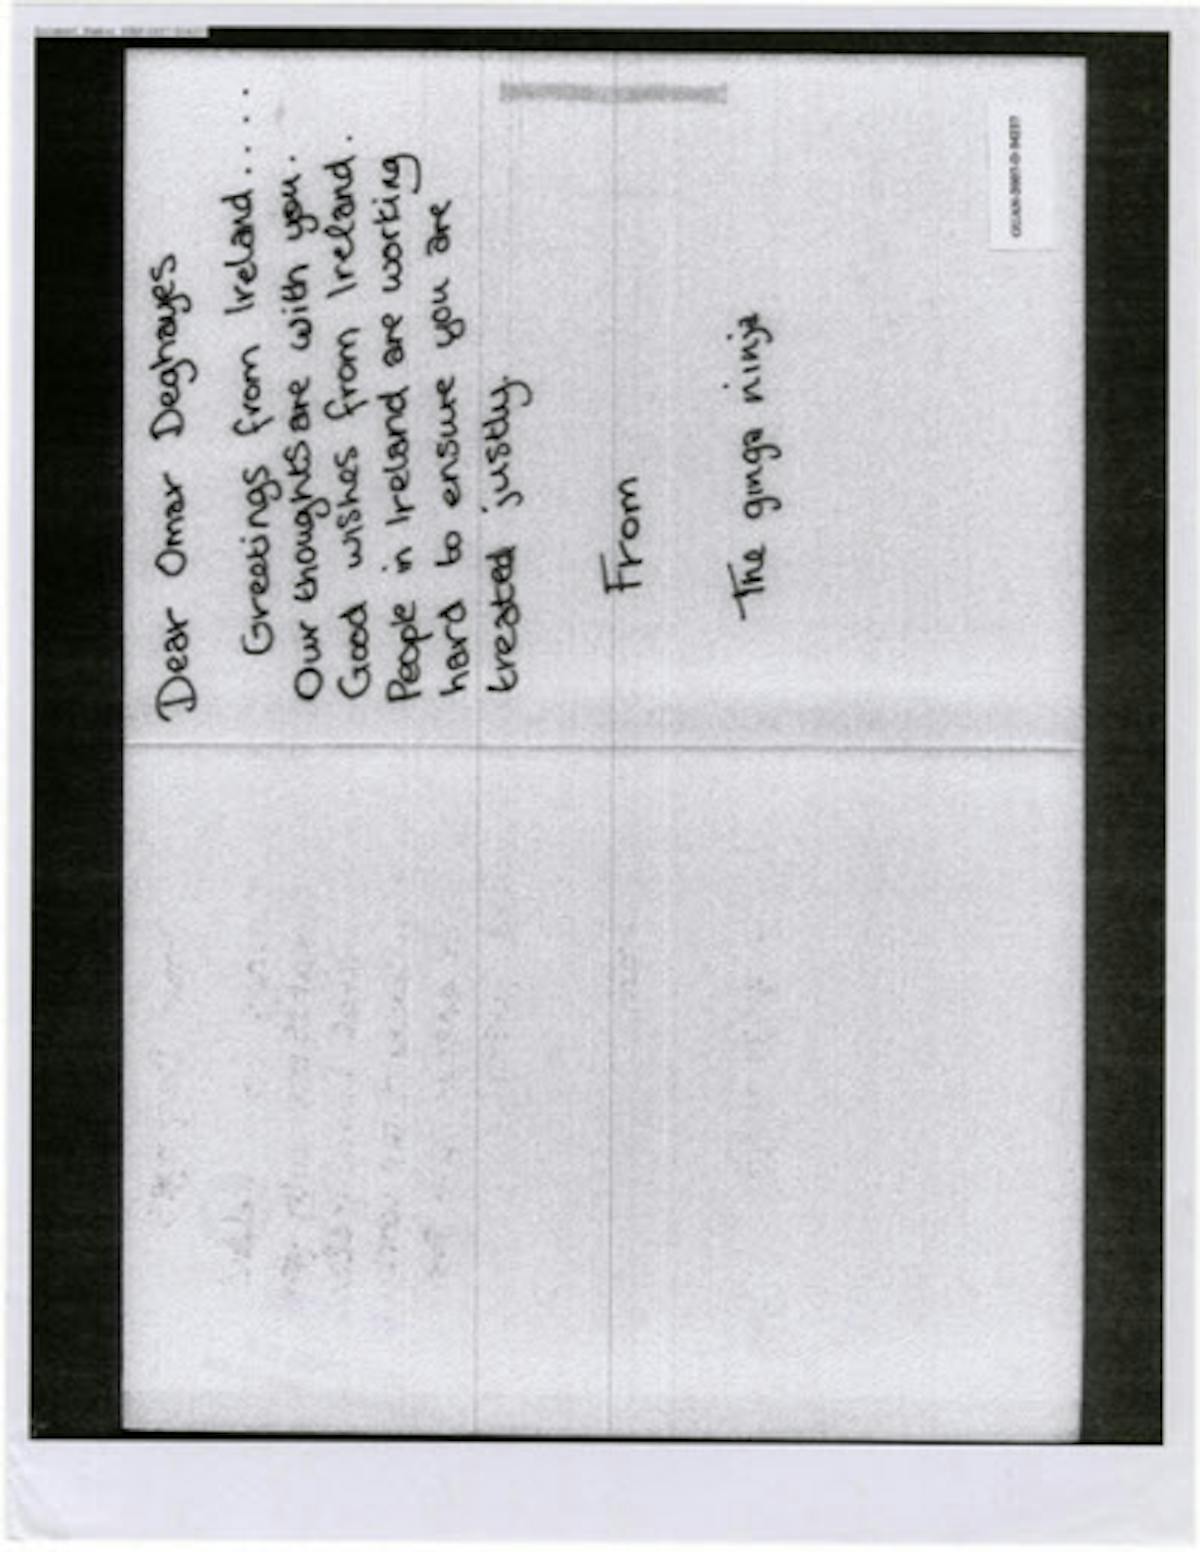 Dear Omar Deghayes
Greetings from Ireland.....
Our thoughts are with you.
Good wishes from Ireland.
People in Ireland are working
hard to ensure you are
treated justly.
From
The ginga ninja